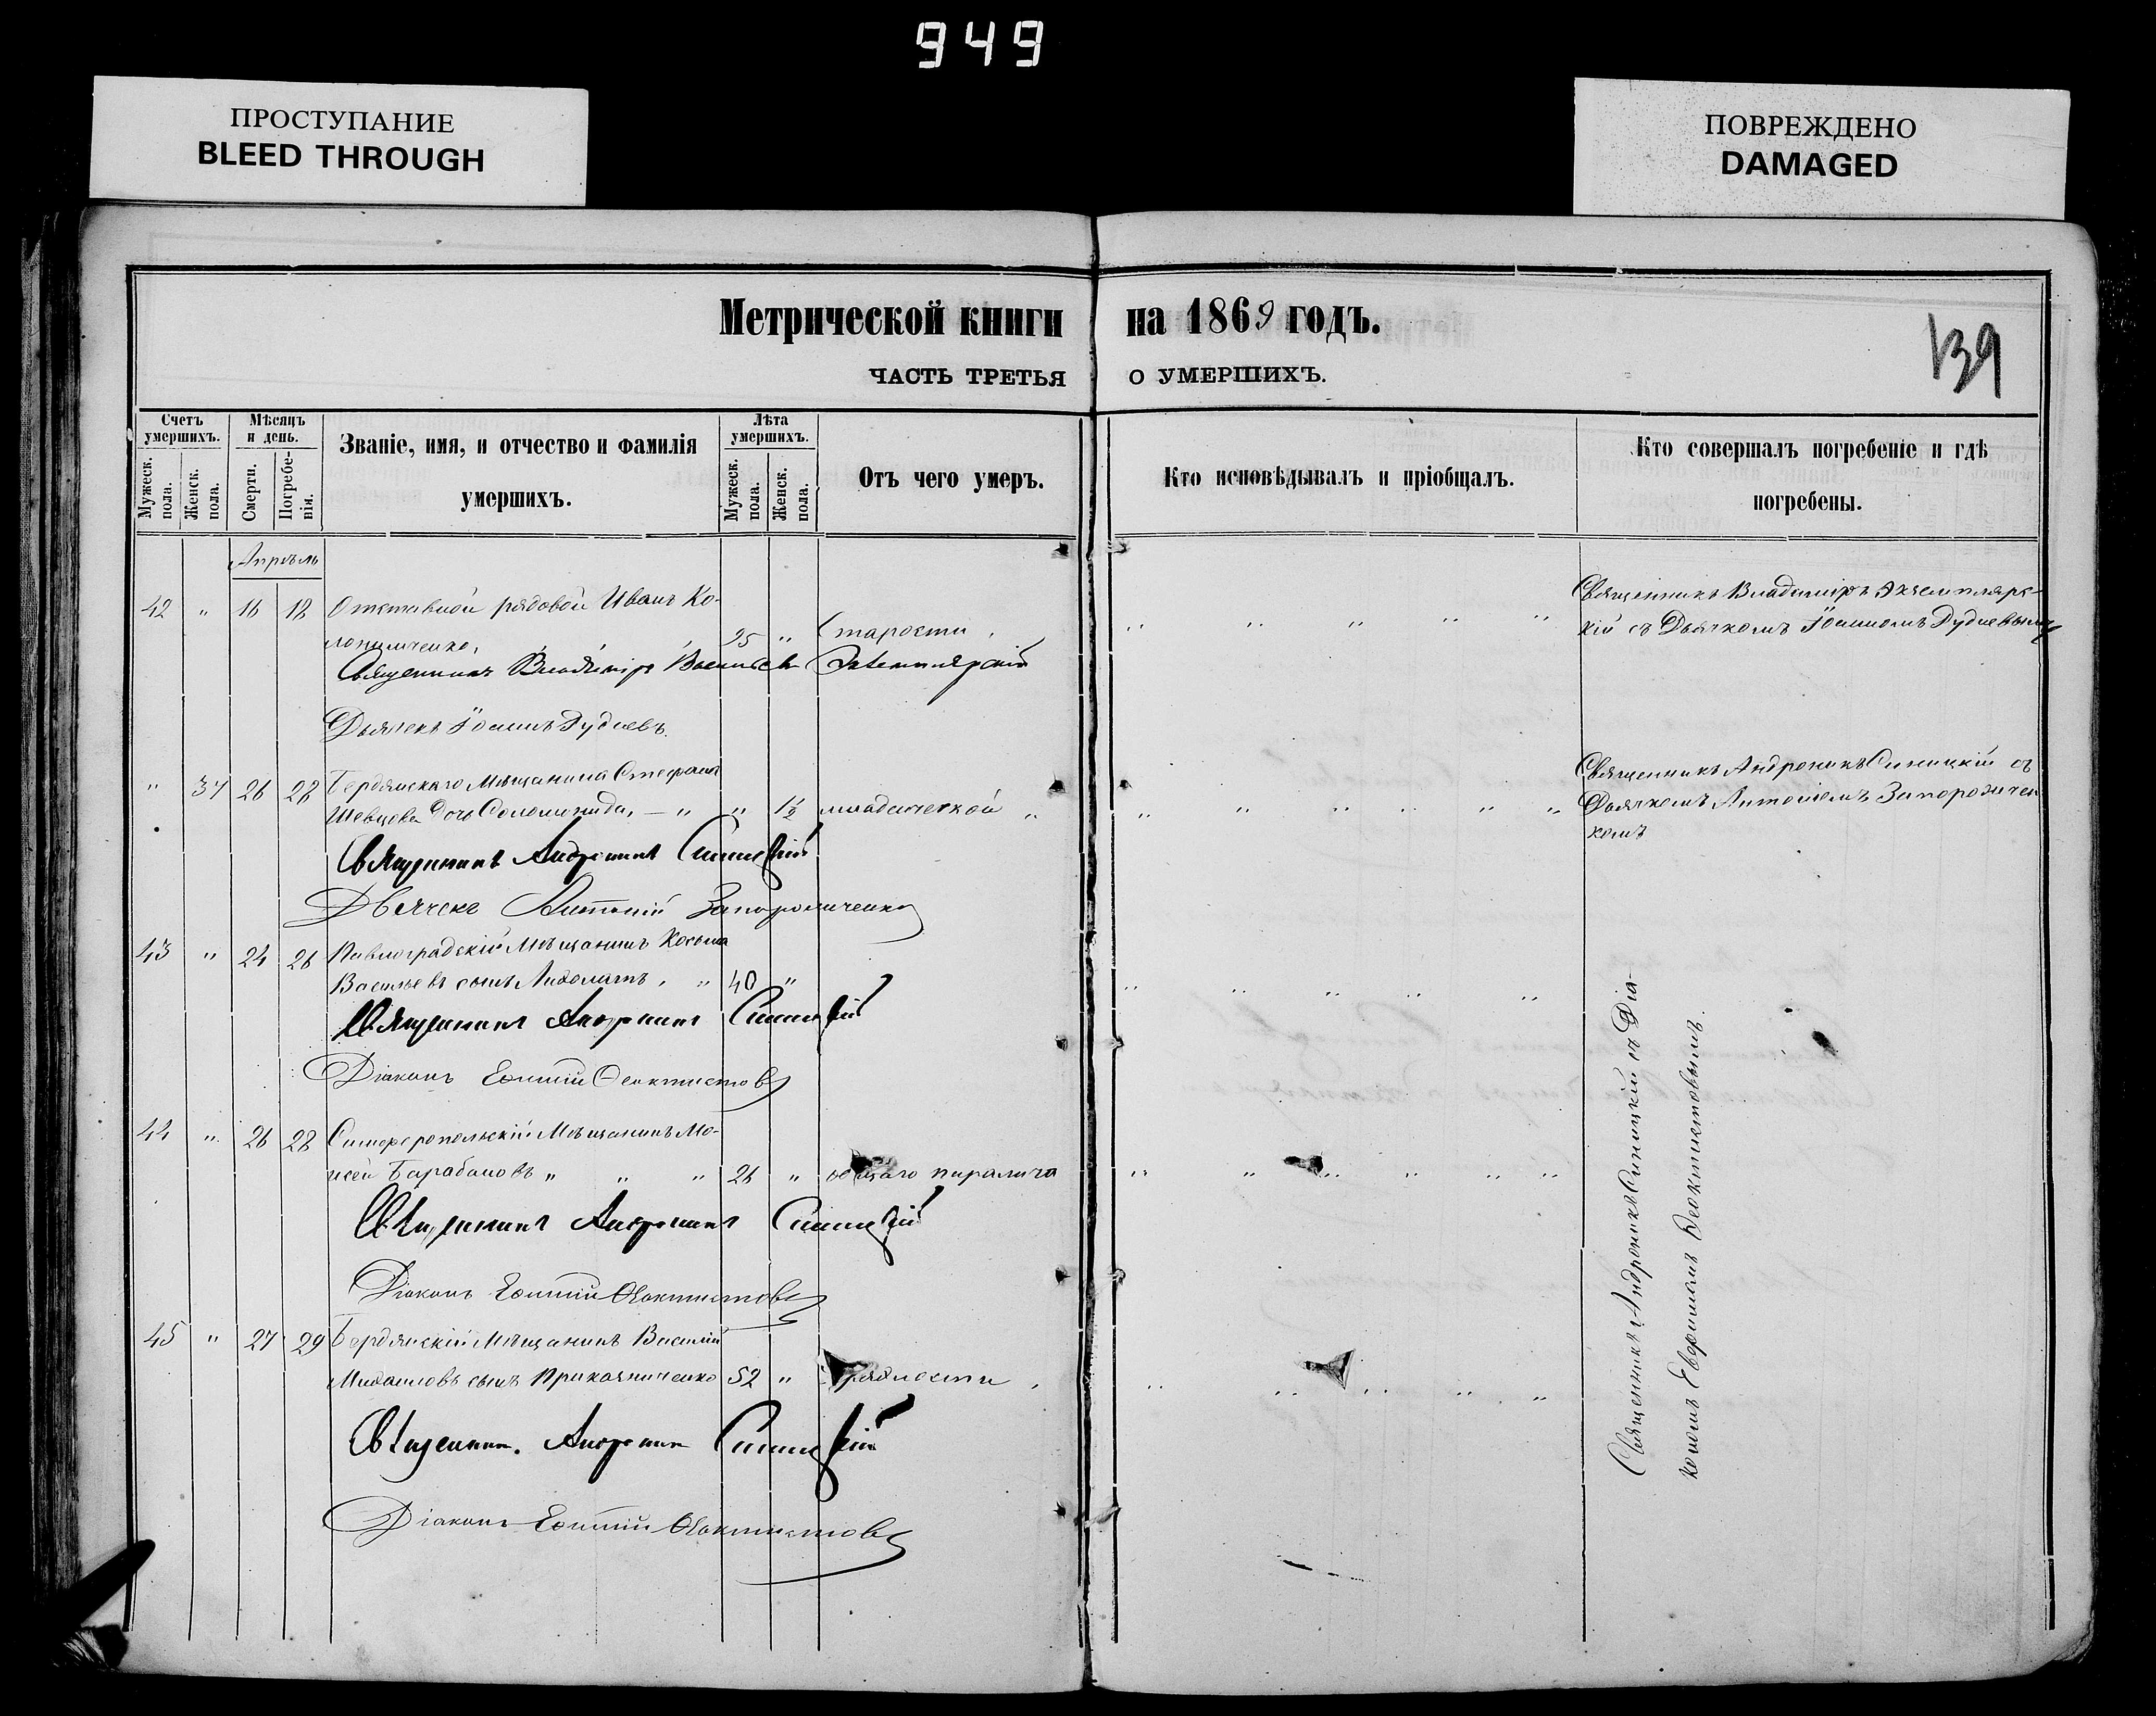 949
ПРОСТУПАНИЕ
BLEED THROUGH
ПОВРЕЖДЕНО
DAMAGED
Метрической книги на 1869 годъ.
139
ЧАСТЬ ТРЕТЬЯ О УМЕРШИХЪ.
Счетъ умершихъ.
Мужеск. пола.
Женск. пола.
Мѣсяцъ и день.
Смерти.
Погребенія.
Званіе, имя, и отчество и фамилія
умершихъ.
Лѣта умершихъ.
Мужеск. пола.
Женск. пола.
Отъ чего умеръ.
Кто исповѣдывалъ и пріобщалъ.
Кто совершалъ погребеніе и гдѣ
погребены.
Апрѣль
42 " 16 18 Отставной рядовой Иванъ Ко-
95 " Старости
Священникъ Владиміръ Экземплярс-
кій съ Дьячкомъ Іоанномъ
Священникъ Владиміръ Васильевъ Экземплярскій
Дьячекъ Іоаннъ
" 37 26 28 Бердянскаго Мѣщанина Стефана
Шевцова дочь Соломонида, — " " 1½ младенческой "
Священникъ Андроникъ Синицкій съ
Дьячкомъ Антоніемъ Запорожчен
комъ
Священникъ Андроникъ Синицкій
Дьячекъ Антоній Запорожченко
43 " 24 26 Павлоградскій Мѣщанинъ Косьма
Васильевъ сынъ " 40 "
Священникъ Андроникъ Синицкій
Діаконъ Евфимій Феоктистовъ
44 " 26 28 Симферопольскій Мѣщанинъ Мо-
исей Барабановъ " " " 26 " паралича
Священникъ Андроникъ Синицкій
Діаконъ Евфимій Феоктистовъ
45 " 27 29 Бердянскій Мѣщанинъ Василій
Михаиловъ сынъ 52 "
Священникъ Андроникъ Синицкій
Діаконъ Евфимій Феоктистовъ
Священникъ Андроникъ Синицкій съ Діа-
кономъ Евфиміемъ Феоктистовымъ.